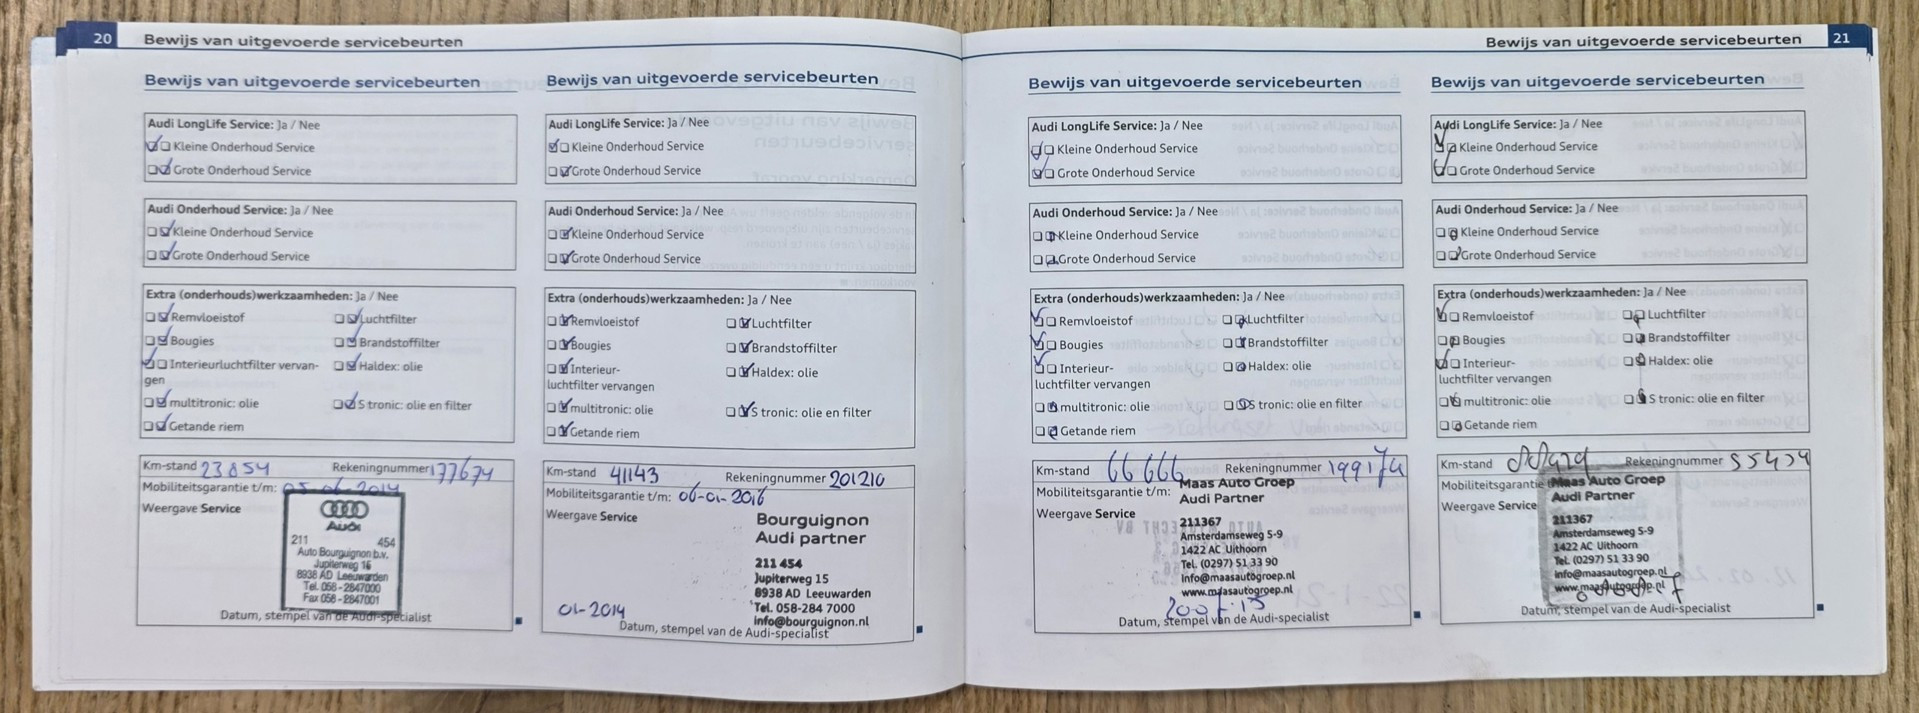 20 Bewijs van uitgevoerde servicebeurten
Bewijs van uitgevoerde servicebeurten
Audi LongLife Service: Ja / Nee
Kleine Onderhoud Service
Grote Onderhoud Service
Audi Onderhoud Service: Ja / Nee
Kleine Onderhoud Service
Grote Onderhoud Service
Extra (onderhouds)werkzaamheden: Ja / Nee
Remvloeistof Luchtfilter
Bougies Brandstoffilter
Interieurluchtfilter vervan- Haldex: olie
gen
multitronic: olie S tronic: olie en filter
Getande riem
Km-stand 23854 Rekeningnummer 177674
Mobiliteitsgarantie t/m: 05-06-2014
Weergave Service
Audi
211 454
Auto Bourguignon b.v.
Jupiterweg 15
8938 AD Leeuwarden
Tel. 058-2847000
Fax 058-2847001
Datum, stempel van de Audi-specialist
Bewijs van uitgevoerde servicebeurten
Audi LongLife Service: Ja / Nee
Kleine Onderhoud Service
Grote Onderhoud Service
Audi Onderhoud Service: Ja / Nee
Kleine Onderhoud Service
Grote Onderhoud Service
Extra (onderhouds)werkzaamheden: Ja / Nee
Remvloeistof Luchtfilter
Bougies Brandstoffilter
Interieur- Haldex: olie
luchtfilter vervangen
multitronic: olie S tronic: olie en filter
Getande riem
Km-stand 41143 Rekeningnummer 201210
Mobiliteitsgarantie t/m: 06-01-2016
Weergave Service
Bourguignon
Audi partner
211 454
Jupiterweg 15
8938 AD Leeuwarden
01-2014 Tel. 058-284 7000
info@bourguignon.nl
Datum, stempel van de Audi-specialist
Bewijs van uitgevoerde servicebeurten 21
Bewijs van uitgevoerde servicebeurten
Audi LongLife Service: Ja / Nee
Kleine Onderhoud Service
Grote Onderhoud Service
Audi Onderhoud Service: Ja / Nee
Kleine Onderhoud Service
Grote Onderhoud Service
Extra (onderhouds)werkzaamheden: Ja / Nee
Remvloeistof Luchtfilter
Bougies Brandstoffilter
Interieur- Haldex: olie
luchtfilter vervangen
multitronic: olie S tronic: olie en filter
Getande riem
Km-stand 66666 Rekeningnummer 199174
Mobiliteitsgarantie t/m:
Weergave Service
Maas Auto Groep
Audi Partner
211367
Amsterdamseweg 5-9
1422 AC Uithoorn
Tel. (0297) 51 33 90
info@maasautogroep.nl
www.maasautogroep.nl
Datum, stempel van de Audi-specialist
Bewijs van uitgevoerde servicebeurten
Audi LongLife Service: Ja / Nee
Kleine Onderhoud Service
Grote Onderhoud Service
Audi Onderhoud Service: Ja / Nee
Kleine Onderhoud Service
Grote Onderhoud Service
Extra (onderhouds)werkzaamheden: Ja / Nee
Remvloeistof Luchtfilter
Bougies Brandstoffilter
Interieur- Haldex: olie
luchtfilter vervangen
multitronic: olie S tronic: olie en filter
Getande riem
Km-stand Rekeningnummer
Mobiliteitsgarantie
Weergave Service
Maas Auto Groep
Audi Partner
211367
Amsterdamseweg 5-9
1422 AC Uithoorn
Tel. (0297) 51 33 90
info@maasautogroep.nl
www.maasautogroep.nl
Datum, stempel van de Audi-specialist